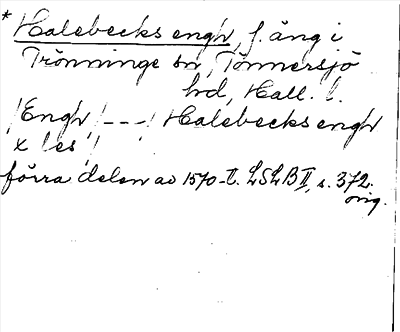 * Halebecks engh, f. äng i
Trönninge sn, Tönnersjö
hd, Hall. l.
/Engh/---/ Halebecks engh
x les/
förra delen av 1570-t. LSLB II, s. 372.
orig.